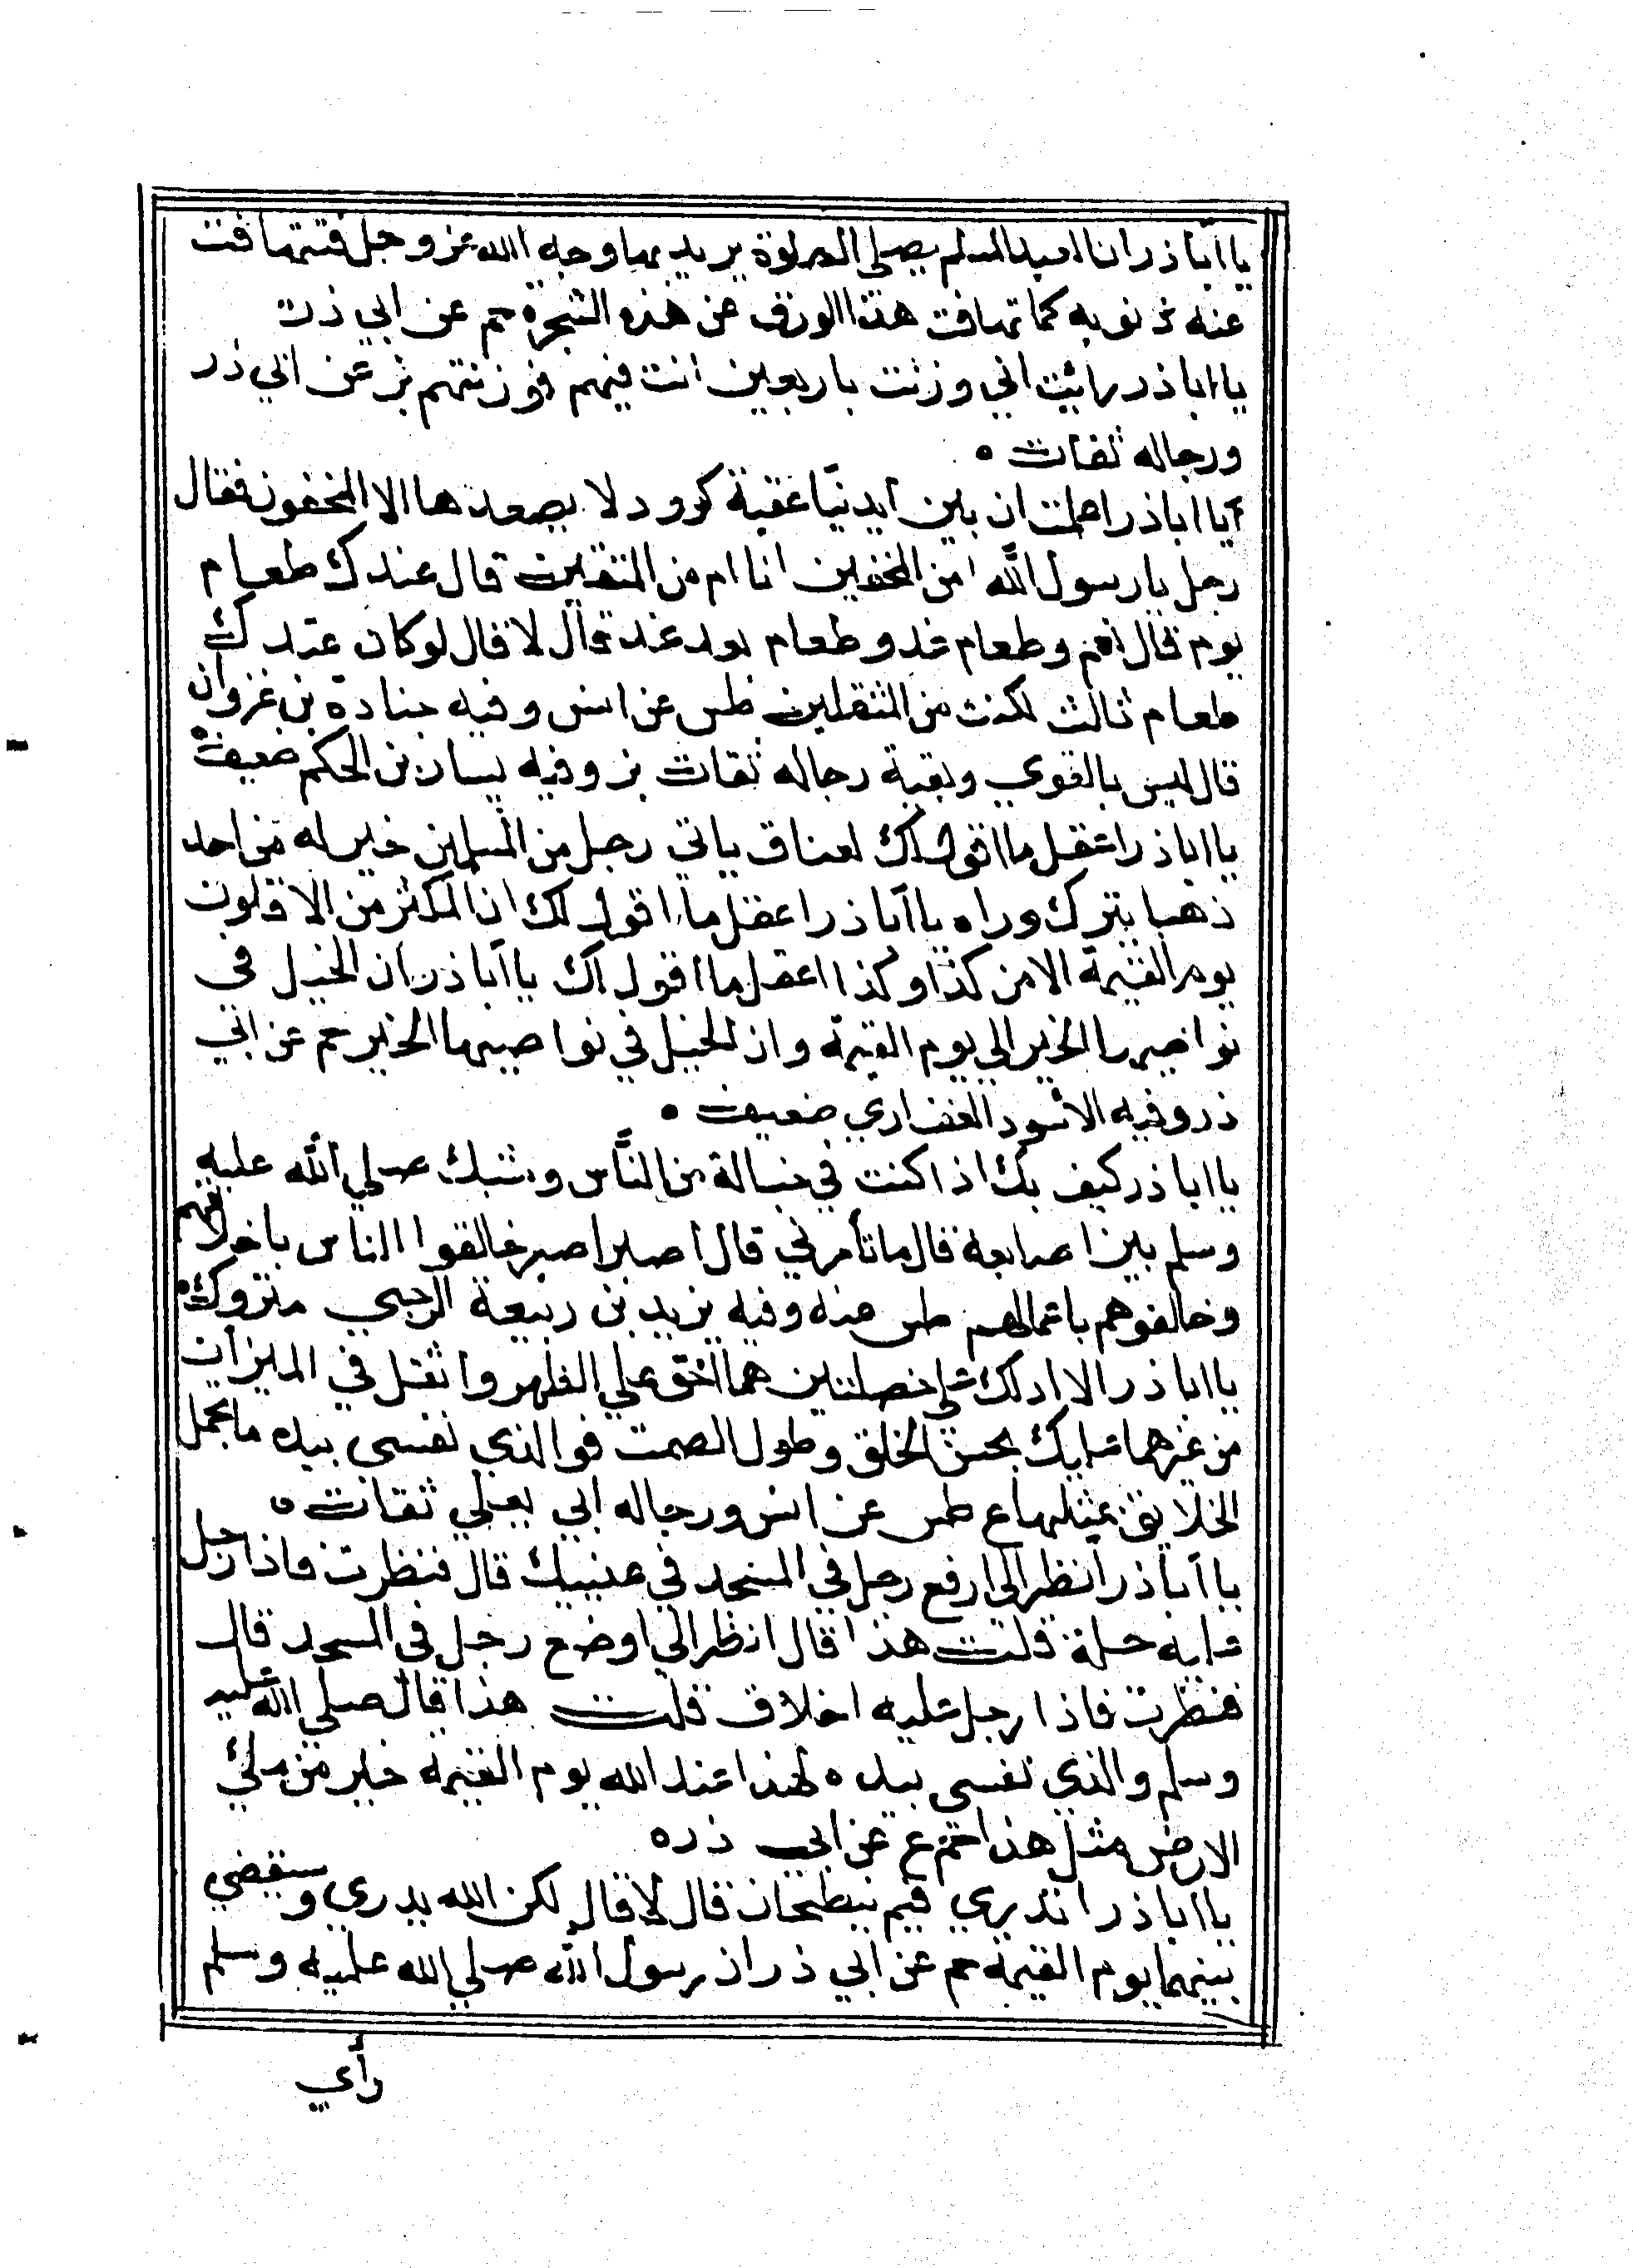 يا اباذر ان العبد المسلم يصلي الصلوة يريد بها وجه الله عز وجل فتتهافت
عنه ذنوبه كما تهافت هذا الورق عن هذه الشجرة حم عن ابي ذر
يا اباذر رائيت اني وزنت باربعين انت فيهم فوزنتهم بز عن ابي ذر
ورجاله ثقات ه
يا اباذر اعلمت ان بين ايدينا عقبة كرود لا يصعدها الا المخفون فقال
رجل يا رسول الله امن المخفين انا ام من المثقلين قال عندك طعام
يوم قال نعم وطعام غد وطعام بعد غد قال لا قال لو كان عندك
طعام ثالث لكنت من المثقلين طس عن انس وفيه جنادة بن غزوان
قال ليس بالقوي وبقية رجاله ثقات بز وفيه يسار بن الحكم ضعيف ه
يا اباذر اعقل ما اقول لك لعناق ياتي رجل من المسلمين خير له من احد
ذهبا يترك وراه يا اباذر اعقل ما اقول لك ان المكثر من الاقلون
يوم القيمة الا من كذا وكذا اعقل ما اقول لك يا اباذر ان الخيل في
نواصيها الخير الي يوم القيمة وان الخيل في نواصيها الخير حم عن ابي
ذر وفيه الاسود الغفاري ضعيف ه
يا اباذر كيف بك اذا كنت في حثالة من الناس وشبك صلي الله عليه
وسلم بين اصابعه قال ما تأمرني قال اصبر اصبر خالقوا الناس باخلاقهم
وخالفوهم باعمالهم طس عنه وفيه يزيد بن ربيعة الرحبي متروك ه
يا اباذر الا ادلك علي خصلتين هما اخق علي الظهر واثقل في الميزان
من غيرهما عليك بحسن الخلق وطول الصمت فو الذي نفسي بيده ما يجمل
الخلايق بمثلهما ع طس عن انس ورجاله ابي يعلي ثقات ه
يا اباذر انظر الي ارفع رجل في المسجد في عينيك قال فنظرت فاذا رجل
عليه حلة قلت هذا قال انظر الي اوضع رجل في المسجد قال
فنظرت فاذا رجل عليه اخلاق قلت هذا قال صلي الله عليه
وسلم والذي نفسي بيده لهذا عند الله يوم القيمة خير من ملئ
الارض مثل هذا حم ع عن ابي ذر ه
يا اباذر اتدري فيم ينتطحان قال لا قال لكن الله يدري وسيقضي
بينهما يوم القيمة حم عن ابي ذر ان رسول الله صلي الله عليه وسلم
رأي